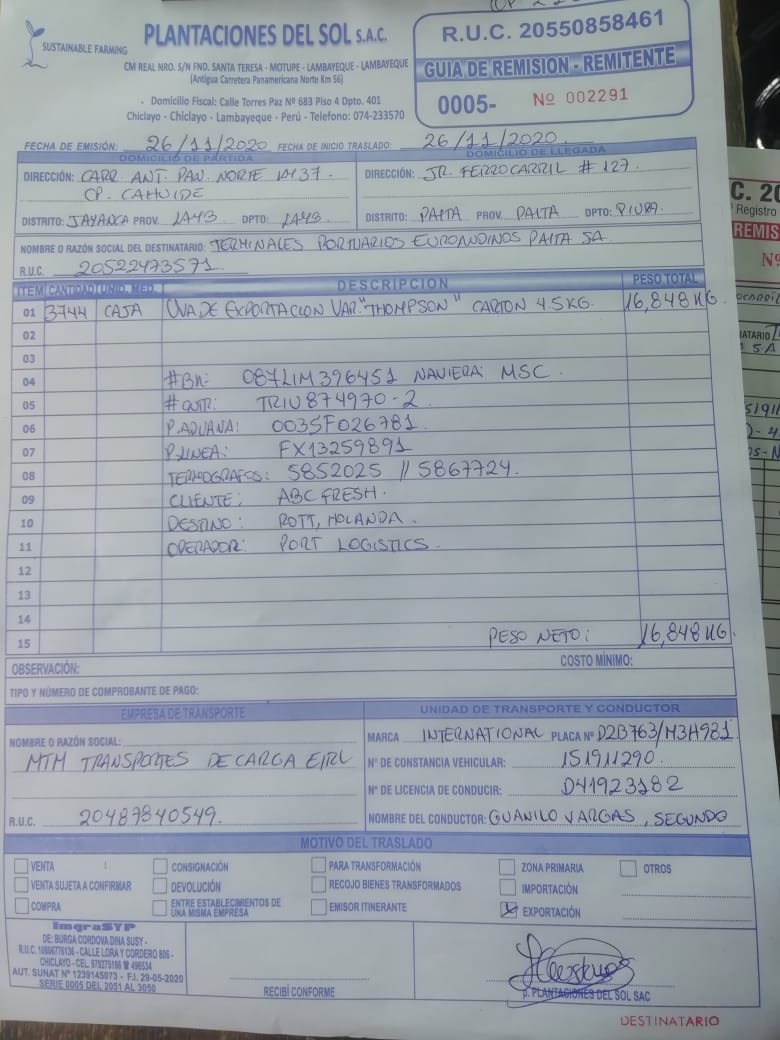 SUSTAINABLE FARMING
PLANTACIONES DEL SOL S.A.C.
CM REAL NRO. S/N FND. SANTA TERESA - MOTUPE - LAMBAYEQUE - LAMBAYEQUE
(Antigua Carretera Panamericana Norte Km 56)
Domicilio Fiscal: Calle Torres Paz Nº 683 Piso 4 Dpto. 401
Chiclayo - Chiclayo - Lambayeque - Perú - Telefono: 074-233570
R.U.C. 20550858461
GUIA DE REMISION - REMITENTE
0005- Nº 002291
FECHA DE EMISIÓN: 26/11/2020 FECHA DE INICIO TRASLADO: 26/11/2020
DOMICILIO DE PARTIDA DOMICILIO DE LLEGADA
DIRECCIÓN: CARR ANT. PAN. NORTE 1437. DIRECCIÓN: JR. FERROCARRIL # 127.
CP. CAHUIDE
DISTRITO: JAYANCA PROV. DPTO: DISTRITO: PAITA PROV. PAITA DPTO: PIURA
NOMBRE O RAZÓN SOCIAL DEL DESTINATARIO: TERMINALES PORTUARIOS EUROANDINOS PAITA SA.
R.U.C. 20522473571
ITEM CANTIDAD UNID. MED. DESCRIPCION PESO TOTAL
01 3744 CAJA UVA DE EXPORTACION VAR. "THOMPSON" CARTON 4.5KG. 16,848 KG
02
03
04 #BK: 087LIM396451 NAVIERA: MSC.
05 #CNTR: TRIU874970-2
06 P.ADUANA: 0035F026781
07 P.LINEA: FX13259891
08 TERMOGRAFOS: 5852025 // 5867724.
09 CLIENTE: ABC FRESH.
10 DESTINO: ROTT, HOLANDA.
11 OPERADOR: PORT LOGISTICS.
12
13
14
15 PESO NETO: 16,848 KG.
OBSERVACIÓN: COSTO MÍNIMO:
TIPO Y NÚMERO DE COMPROBANTE DE PAGO:
EMPRESA DE TRANSPORTE UNIDAD DE TRANSPORTE Y CONDUCTOR
NOMBRE O RAZÓN SOCIAL: MARCA INTERNATIONAL PLACA Nº D2B763/M3H981
MTM TRANSPORTES DE CARGA EIRL Nº DE CONSTANCIA VEHICULAR: 151911290.
Nº DE LICENCIA DE CONDUCIR: D41923182
R.U.C. 20487840549. NOMBRE DEL CONDUCTOR: GUANILO VARGAS, SEGUNDO
MOTIVO DEL TRASLADO
VENTA CONSIGNACIÓN PARA TRANSFORMACIÓN ZONA PRIMARIA OTROS
VENTA SUJETA A CONFIRMAR DEVOLUCIÓN RECOJO BIENES TRANSFORMADOS IMPORTACIÓN
COMPRA ENTRE ESTABLECIMIENTOS DE EMISOR ITINERANTE EXPORTACIÓN
UNA MISMA EMPRESA
ImgraSYP
DE: BURGA CORDOVA DINA SUSY -
R.U.C. 10806776136 - CALLE LORA Y CORDERO 806 -
CHICLAYO - CEL. 979275166 ☎ 496534
AUT. SUNAT Nº 1239145073 - F.I. 29-05-2020
SERIE 0005 DEL 2051 AL 3050
RECIBÍ CONFORME
p. PLANTACIONES DEL SOL SAC
DESTINATARIO
C. 20
Registro
REMIS
Nº